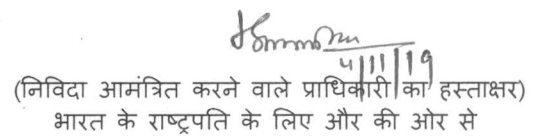 4/11/19
(निविदा आमंत्रित करने वाले प्राधिकारी का हस्ताक्षर)
भारत के राष्ट्रपति के लिए और की ओर से